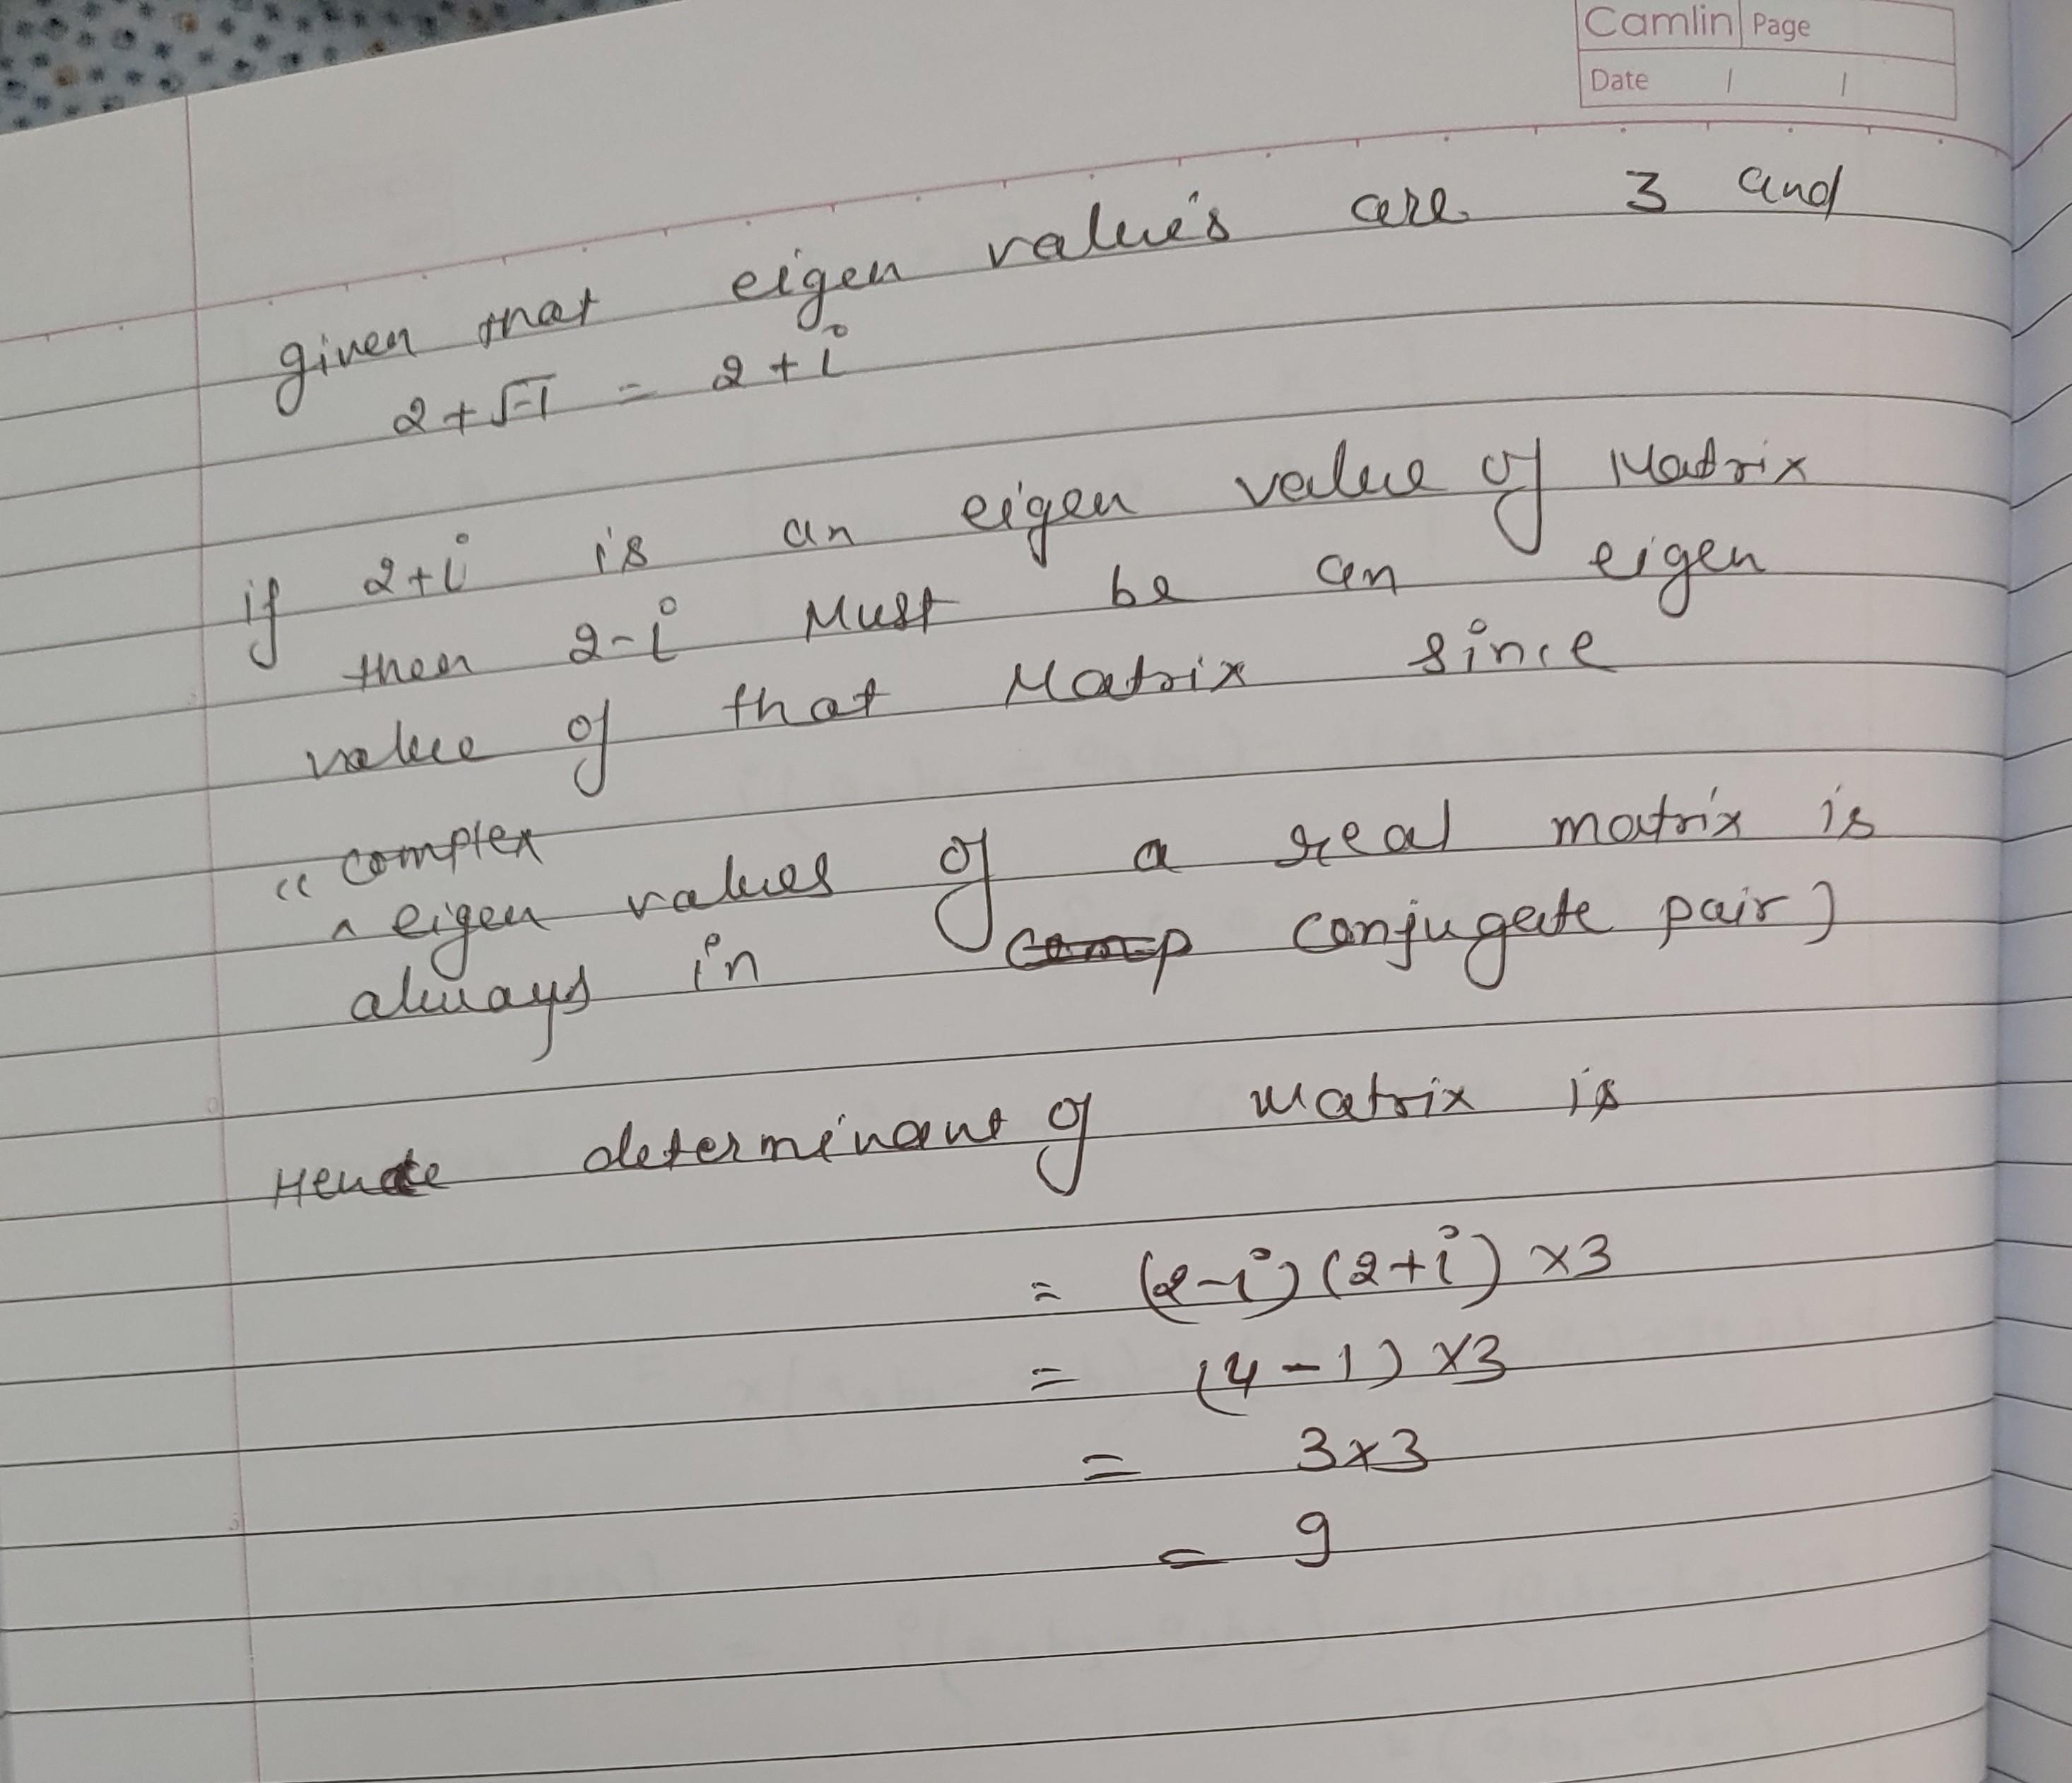 Camlin Page
Date / /
given that eigen value's are 3 and
2+√-1 = 2+i
if 2+i is an eigen value of Matrix
then 2-i Must be an eigen
value of that Matrix since
" complex
^ eigen values of a real matrix is
always in comp conjugate pair)
Hence determinant of Matrix is
= (2-i)(2+i) ×3
= (4-1) ×3
= 3×3
= 9